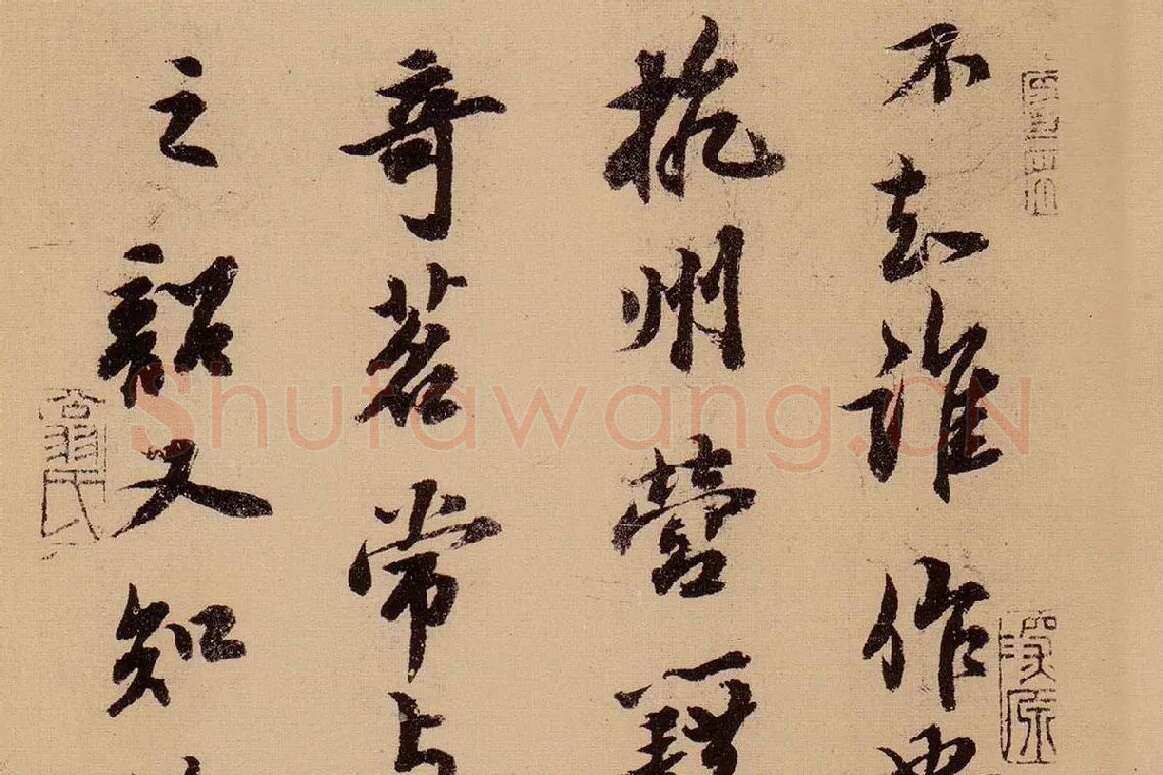 不去誰作
杭州營籍
奇茗常与
之韶又知
Shufawang.CN